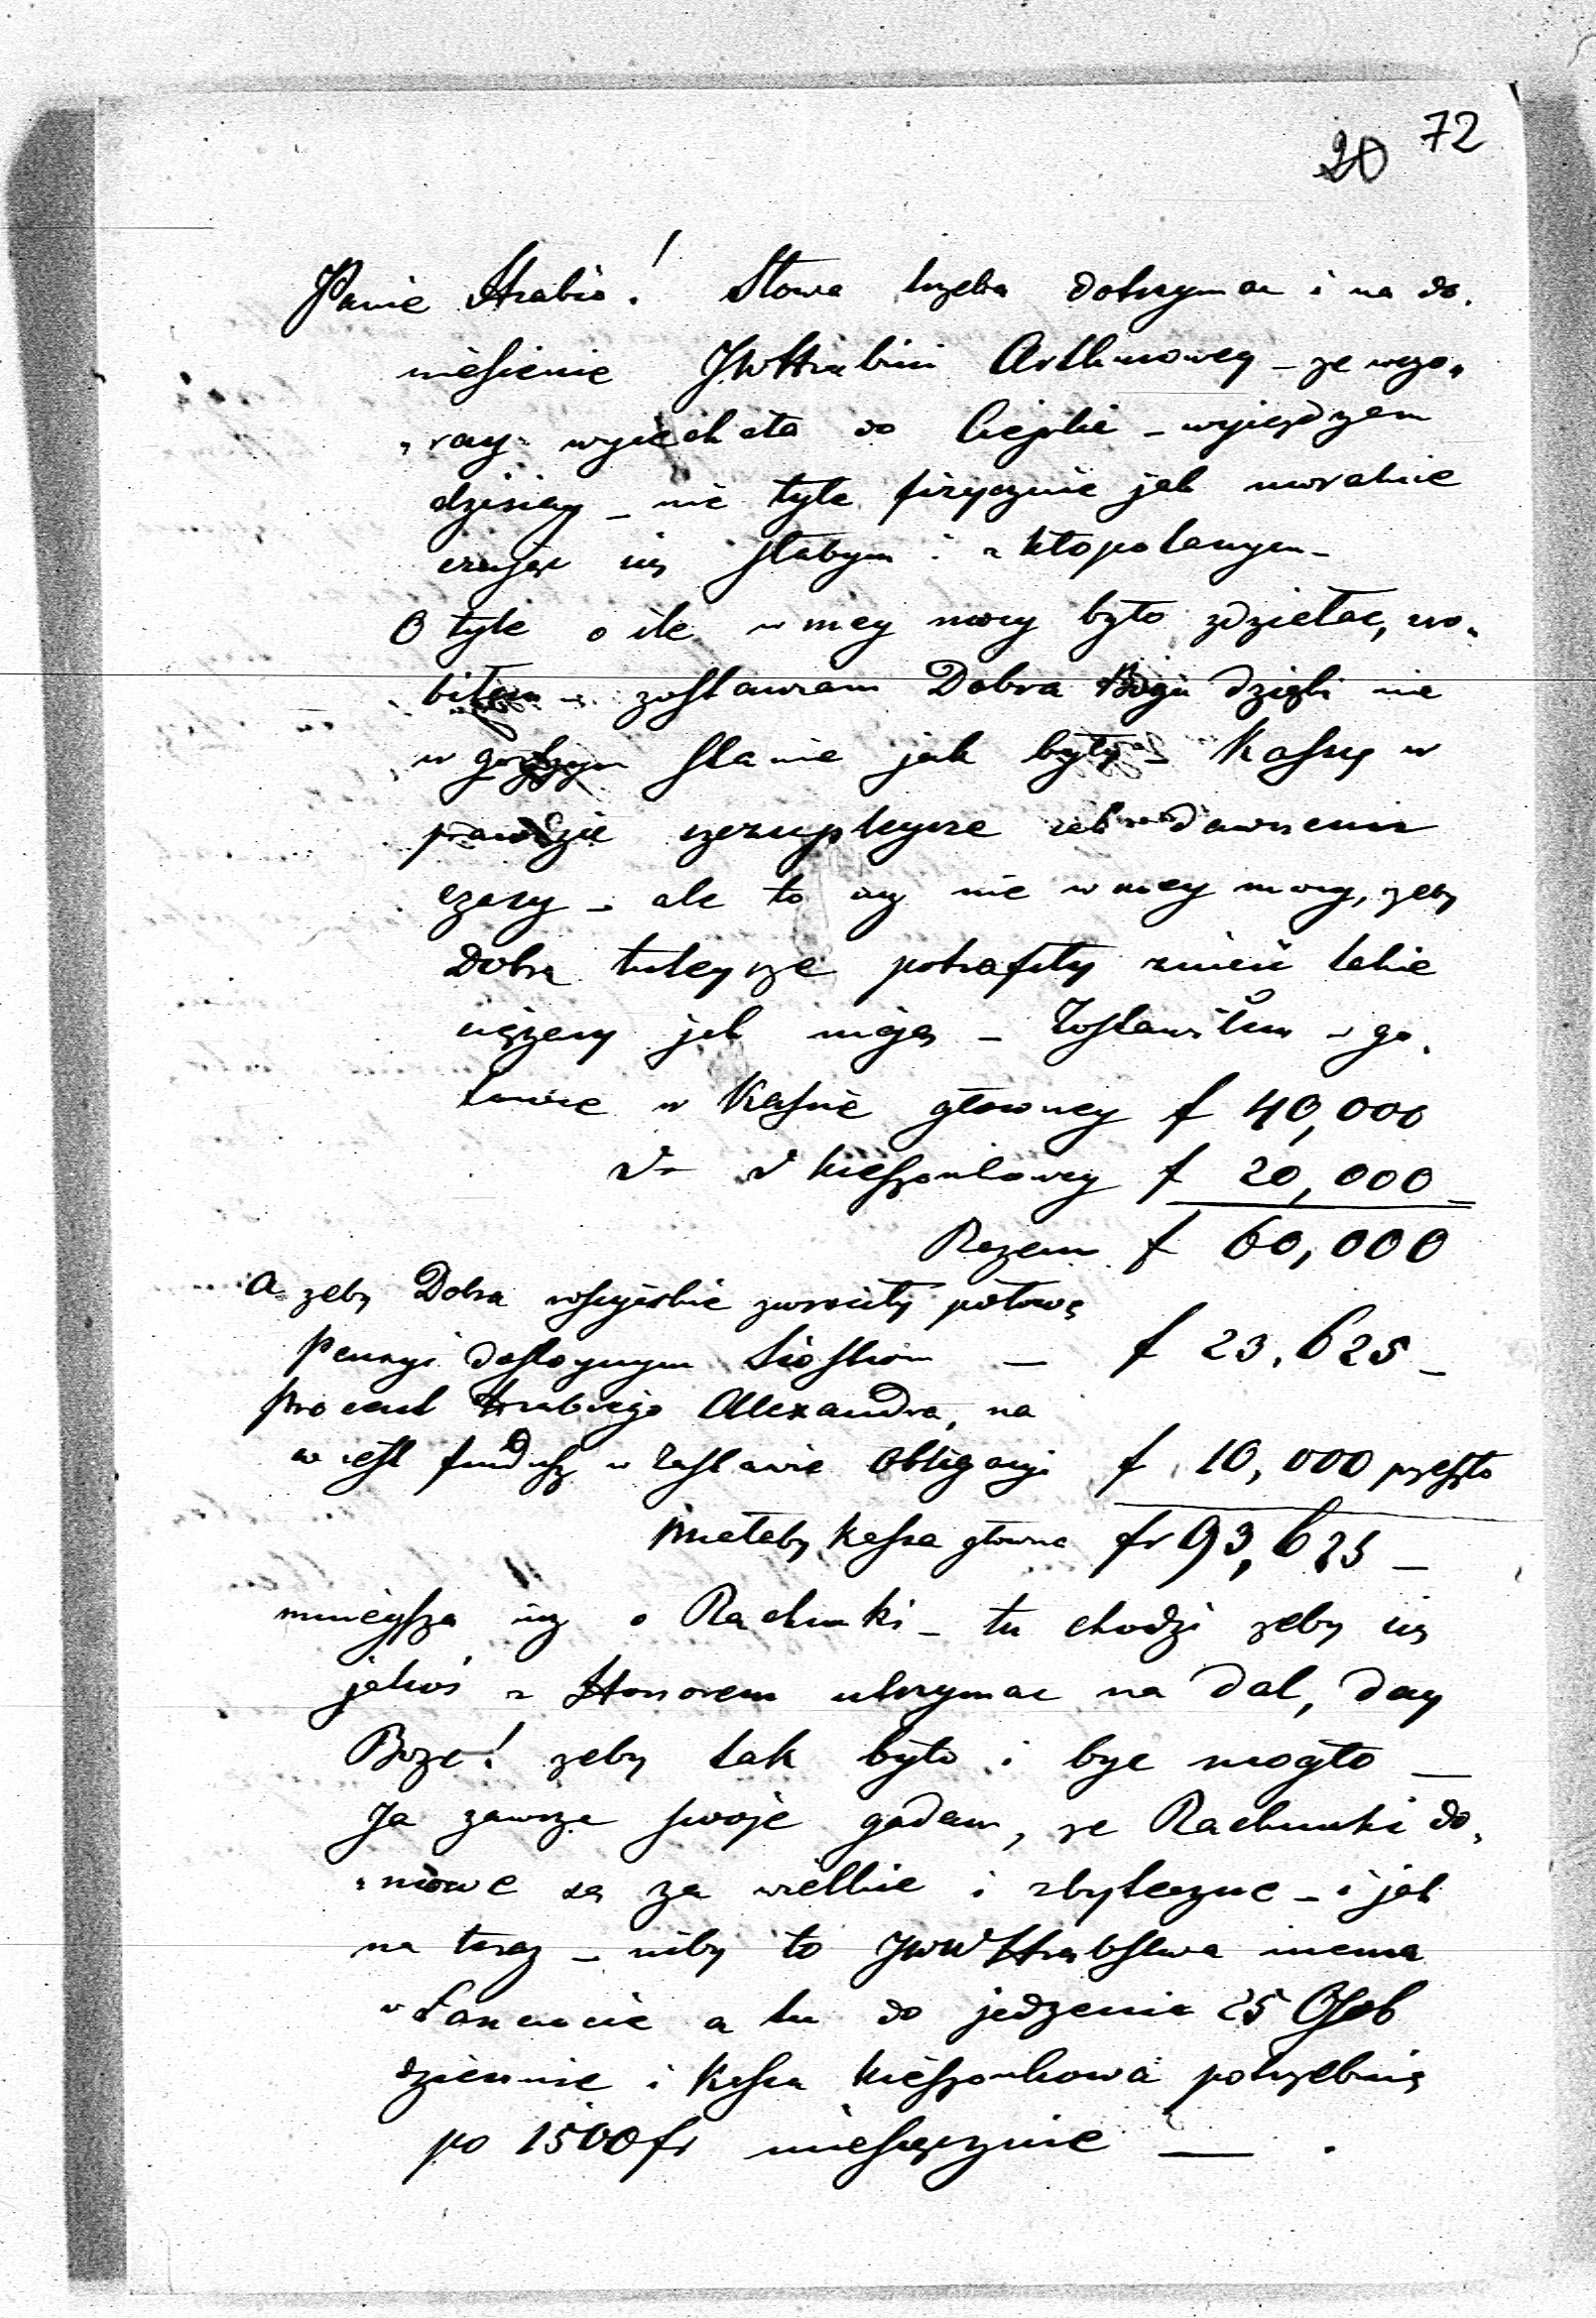 72
20
Panie Hrabio! Słowa trzeba dotrzymac i na do„
niesienie JWHrabini Arthurowey – ze wczo„
„ray wyiechała do Ciepłic – wyieżdzam
dzisiay – nie tyle fizycznie jak moralnie
czując się słabym i zkłopotanym –
O tyle o ile w mey mocy było zdziełac, zro„
biłem – zostawiam Dobra Bogu dzięki nie
w gorszym stanie jak były – Kassę w
prawdzie szczupleysze jak dawnemi
czasy – ale to iuz nie w mey mocy, zeby
Dobra tuteysze potrafiły znieść takie
ciężary jak mają – Zostawiłem w go„
towce w Kassie głowney f 40,000
do d kieszonkowey f 20,000
Razem f 60,000
A zeby Dobra rossyiskie zwrociły połowę
Pensyi dostoynym Siostrom — f 23,625 –
procent Hrabiego Alexandra, na
w iest fundusz w zastawie Obligacyi f 10,000 przeszło
miałaby kassa głowna fr 93,625 –
mnieysza iuz o Rachunki – tu chodzi zeby się
jakoś z Honorem utrzymac na dal, day
Boze! zeby tak było i byc mogło —
Ja zawsze swoje gadam, ze Rachunki do„
„mowe są za wielkie i zbyteczne – i jak
na teraz – niby to JWWHrabstwa niema
w Łancucie a tu do jedzenia 25 Osob
dziennie i Kassa kieszonkowa potrzebuie
po 1500 fr miesięcznie —